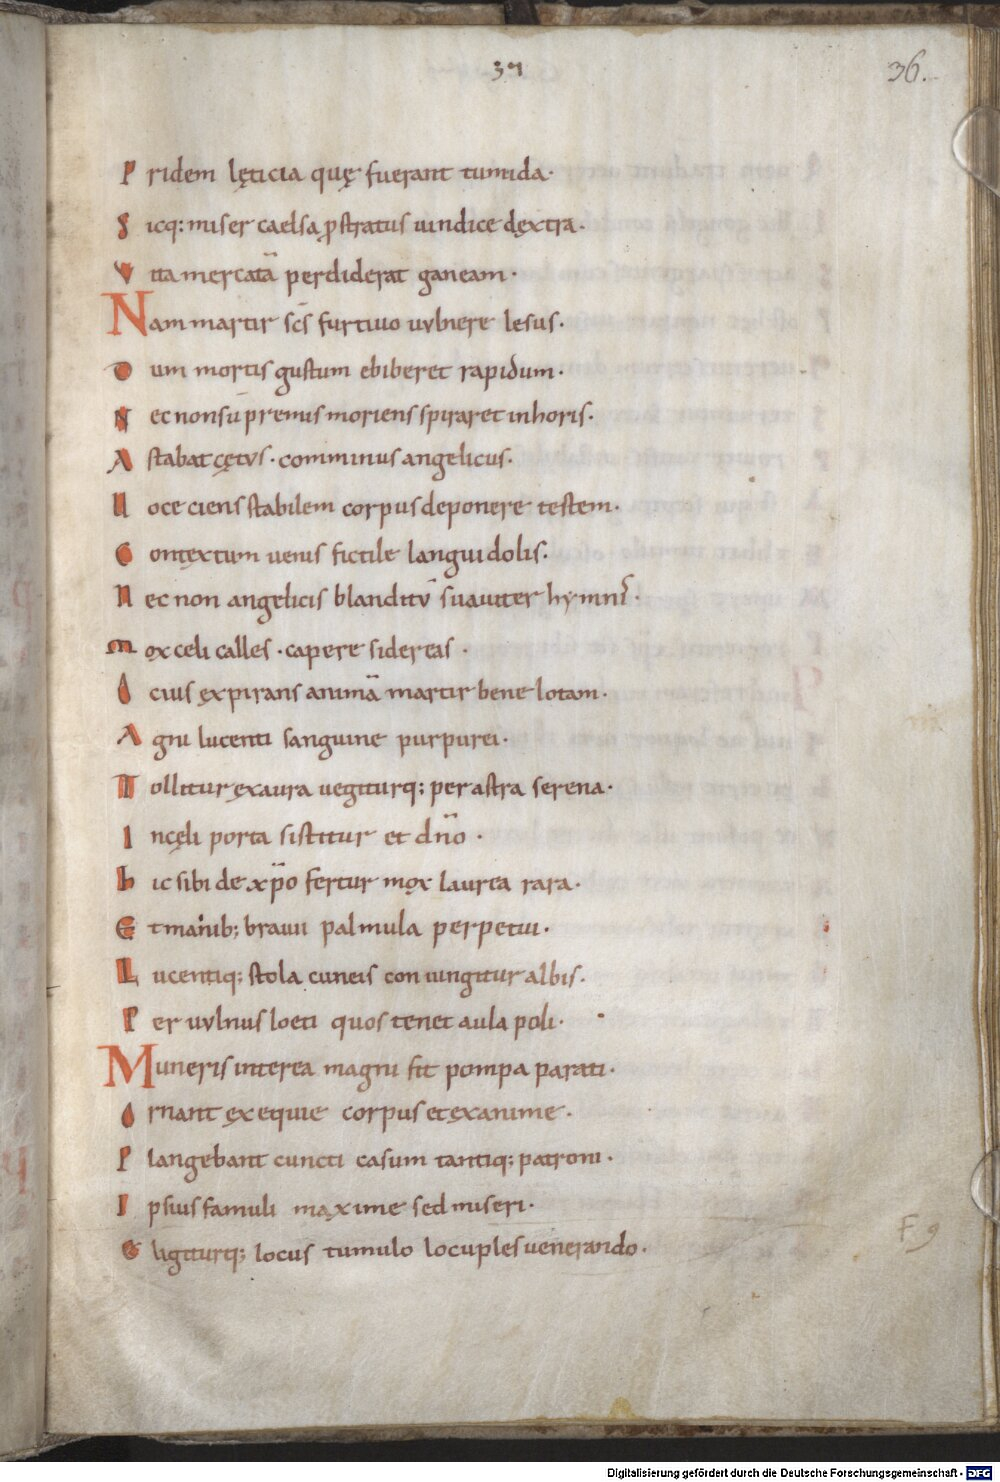 37
36.
Pridem lęticia quę fuerant tumida.
Sicq; miser caelsa prstratus uindice dextra.
Vita mercatā perdiderat ganeam.
Nam martir scs furtiuo uulnere lesus.
Dum mortis gustum ebiberet rapidum.
Nec non sūpremus moriens spiraret in horis.
Astabat cętus. comminus angelicus.
Uoce ciens stabilem corpus deponere testem.
Contextum uenis fictile languidolis.
Nec non angelicis blanditū suauiter hymnis.
Mox celi calles. capere sidereas.
Ocius expirans animā martir bene lotam.
Agni lucenti sanguine purpurei.
Tollitur exaura uegiturq; per astra serena.
In cęli porta sistitur et dno.
Hic sibi de xpo fertur mox laurea rara.
Et manib; brauii palmula perpetui.
Lucentiq; stola cuneis coniungitur albis.
Per uulnus loeti quos tenet aula poli.
Muneris interea magni fit pompa parati.
Ornant exequie corpus et exanime.
Plangebant cuncti casum tantiq; patroni.
Ipsius famuli maxime sed miseri.
Eligiturq; locus tumulo locuples uenerando.
F 9
Digitalisierung gefördert durch die Deutsche Forschungsgemeinschaft - DFG